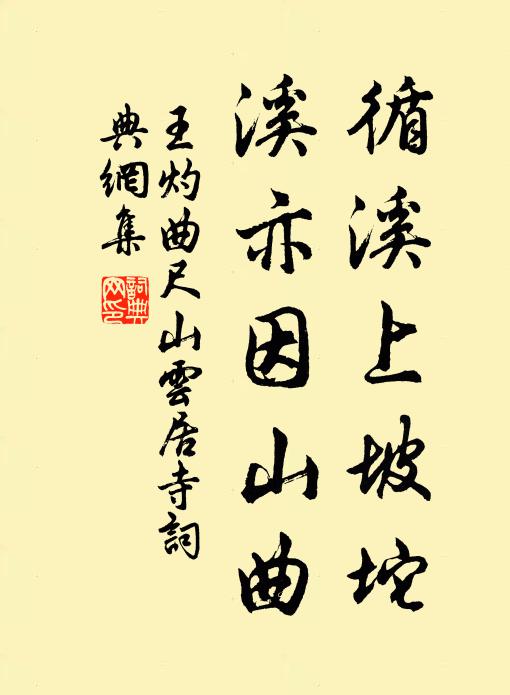 循溪上坡坨
溪亦因山曲
王灼曲尺山雲居寺詞
典網集
詞典
网印